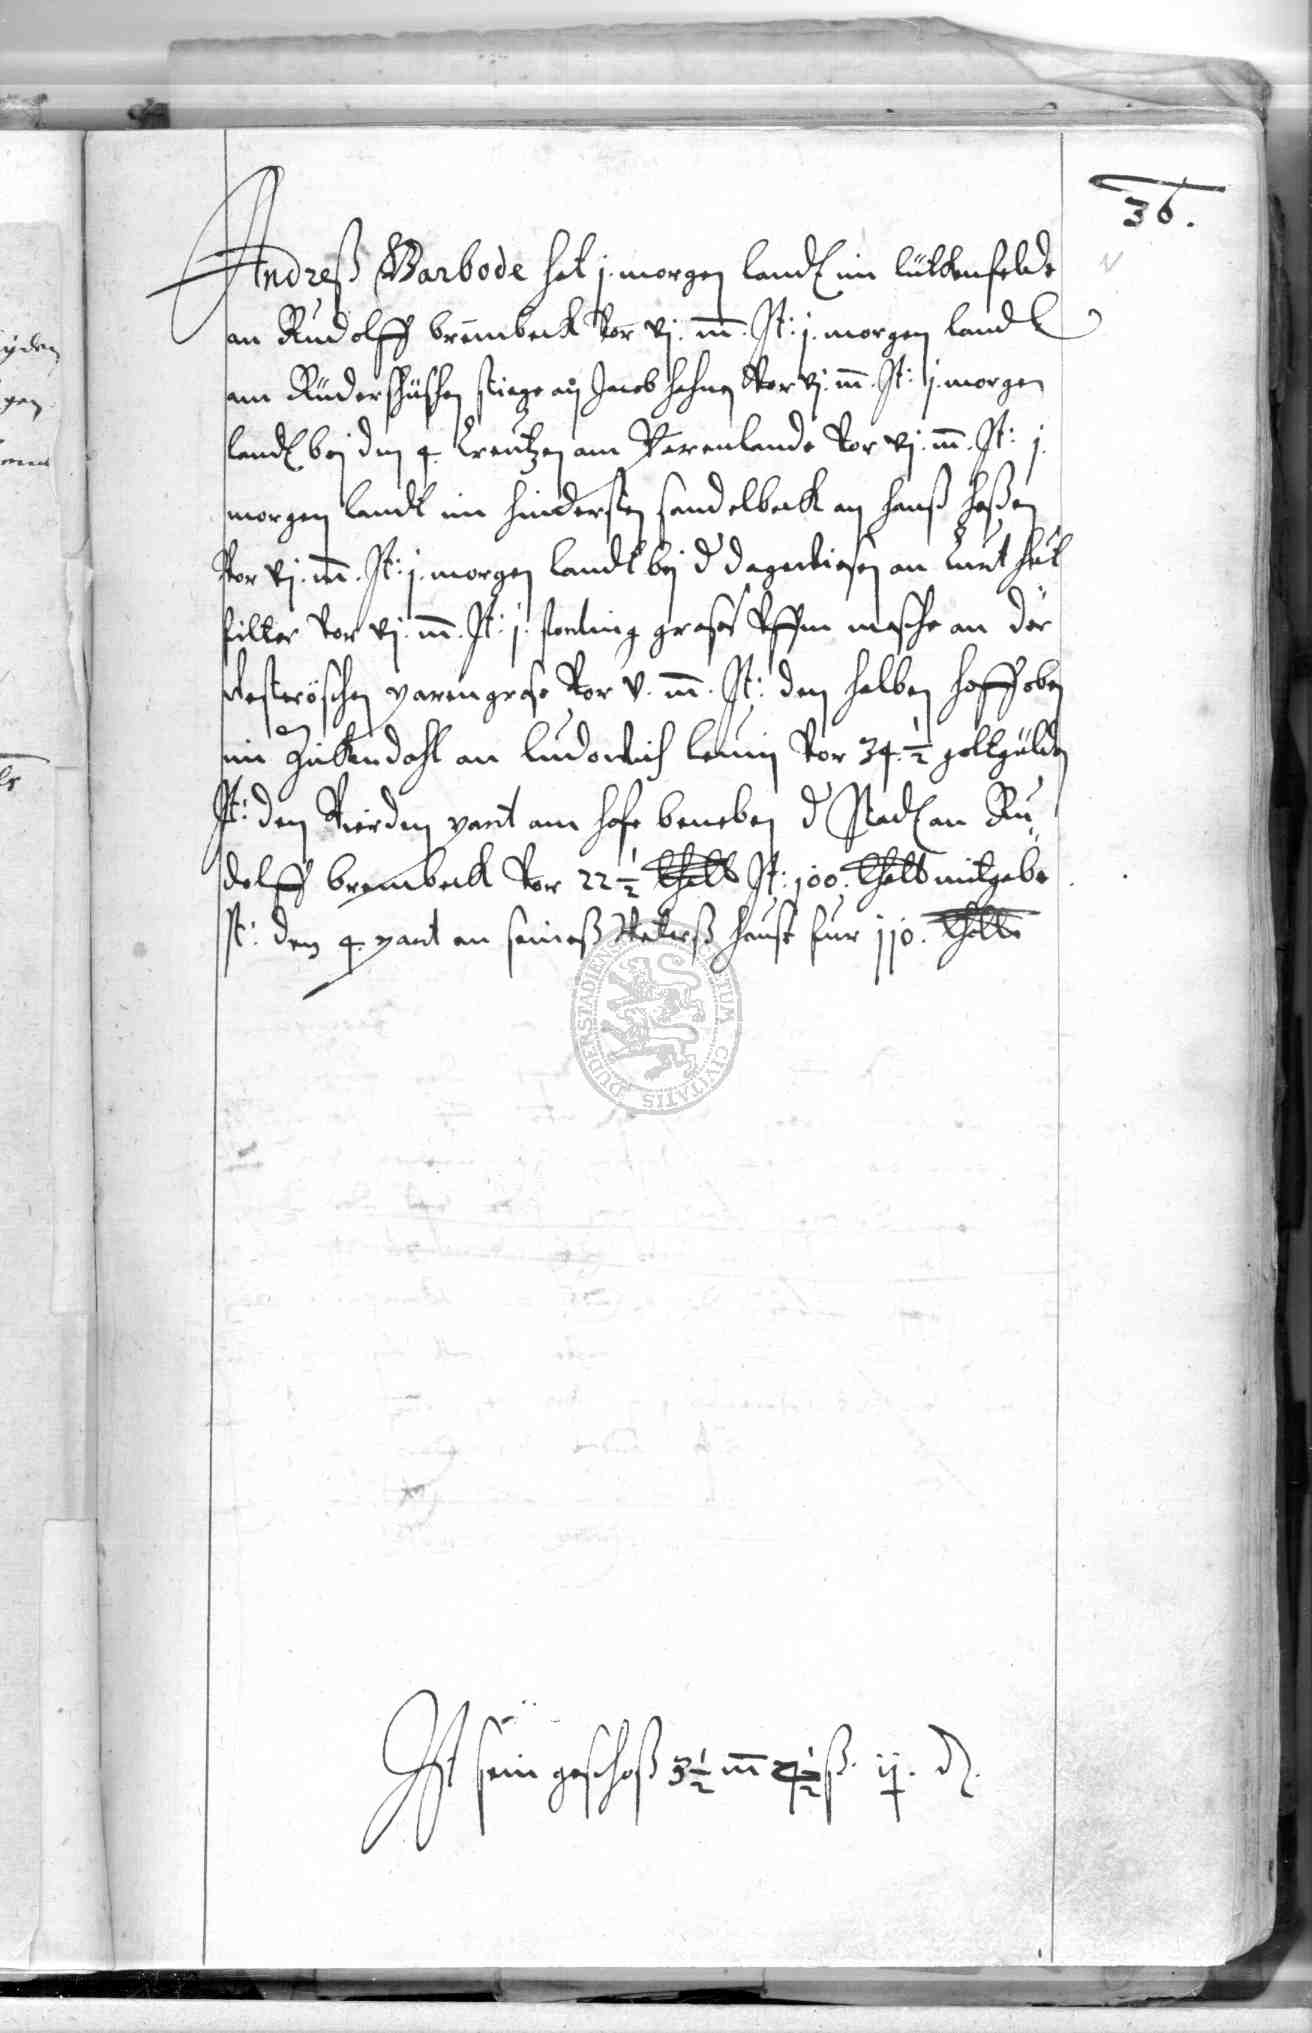 36.
Andreß Warbode hat j. morgen landt im lütkenfelde
an Rudolff brembeck vor vj. m. It: j. morgen landt
am Rüdershüschen stiege an Jacob hahnen vor vj. m. It: j. morgen
landt bei den 4. Creutzen am Parenlande vor vj. m. It: j.
morgen landt im hindersten sandelbeck an hanß haßen
vor vj. m. It: j. morgen landt bei d an Curt
filter vor vj. m. It: j. forling grases Uffm masche an der
Westeröschen parengrase vor v. m. It: den halben hoff oben
im an Ludowich Leuin vor 34 1/2 goltgülden
It: den Vierden part am hofe beneben d Stadt an Ru
dolff brembeck vor 22 1/2 It: 100. mitgabe
It: den 4. part an seineß Vaterß hause fur 110.
Ist sein geschoß 3 1/2 m 4 1/2 ß. ij. d.
DUDERSTADIENSIS CIVITATIS